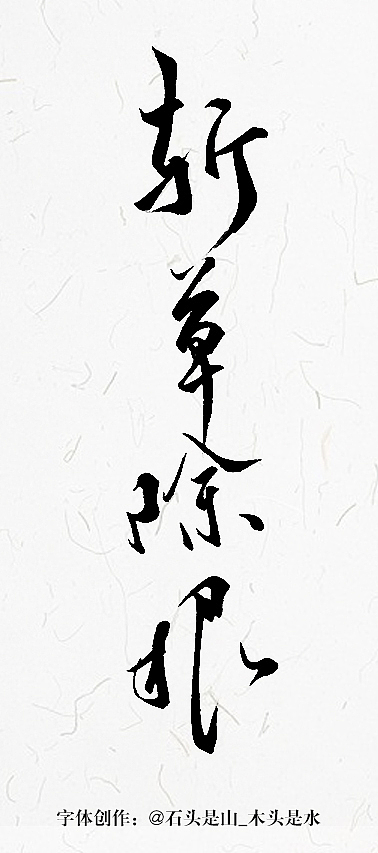 斩草除根
字体创作：@石头是山_木头是水